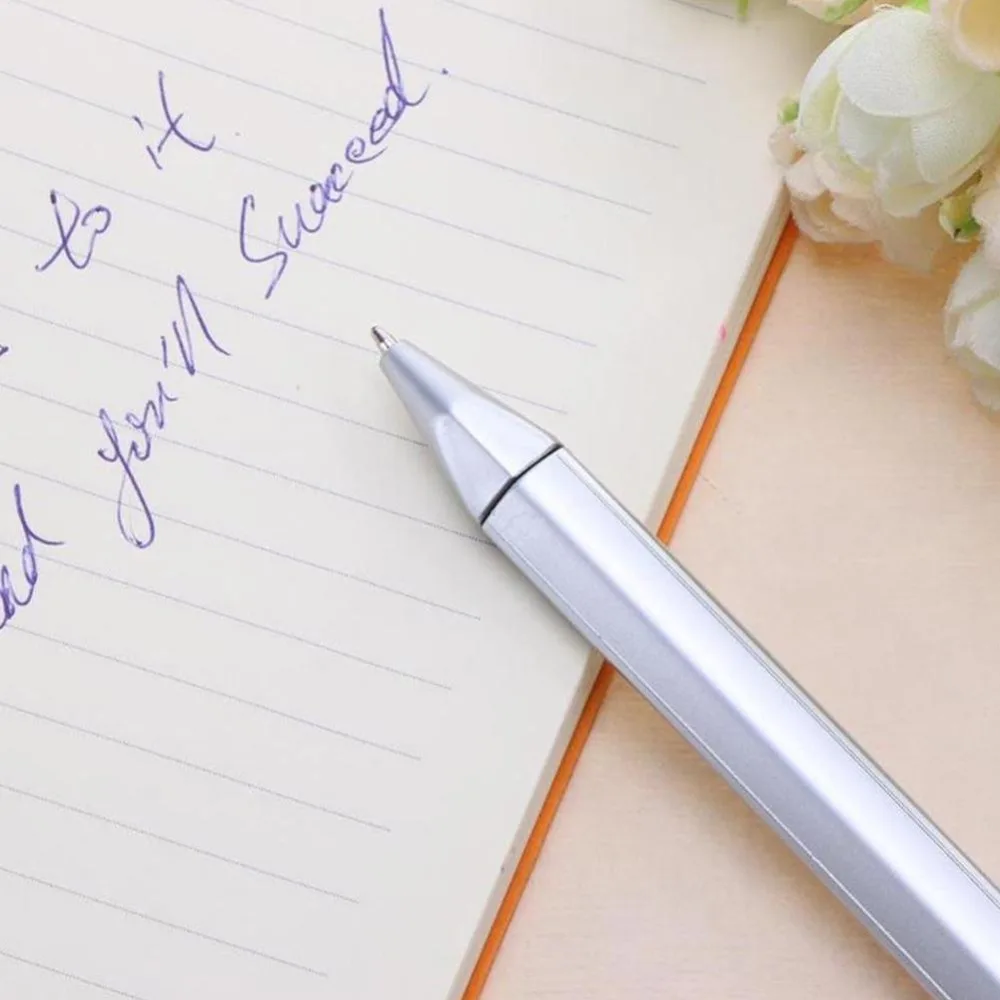 to it
you'll Succeed.